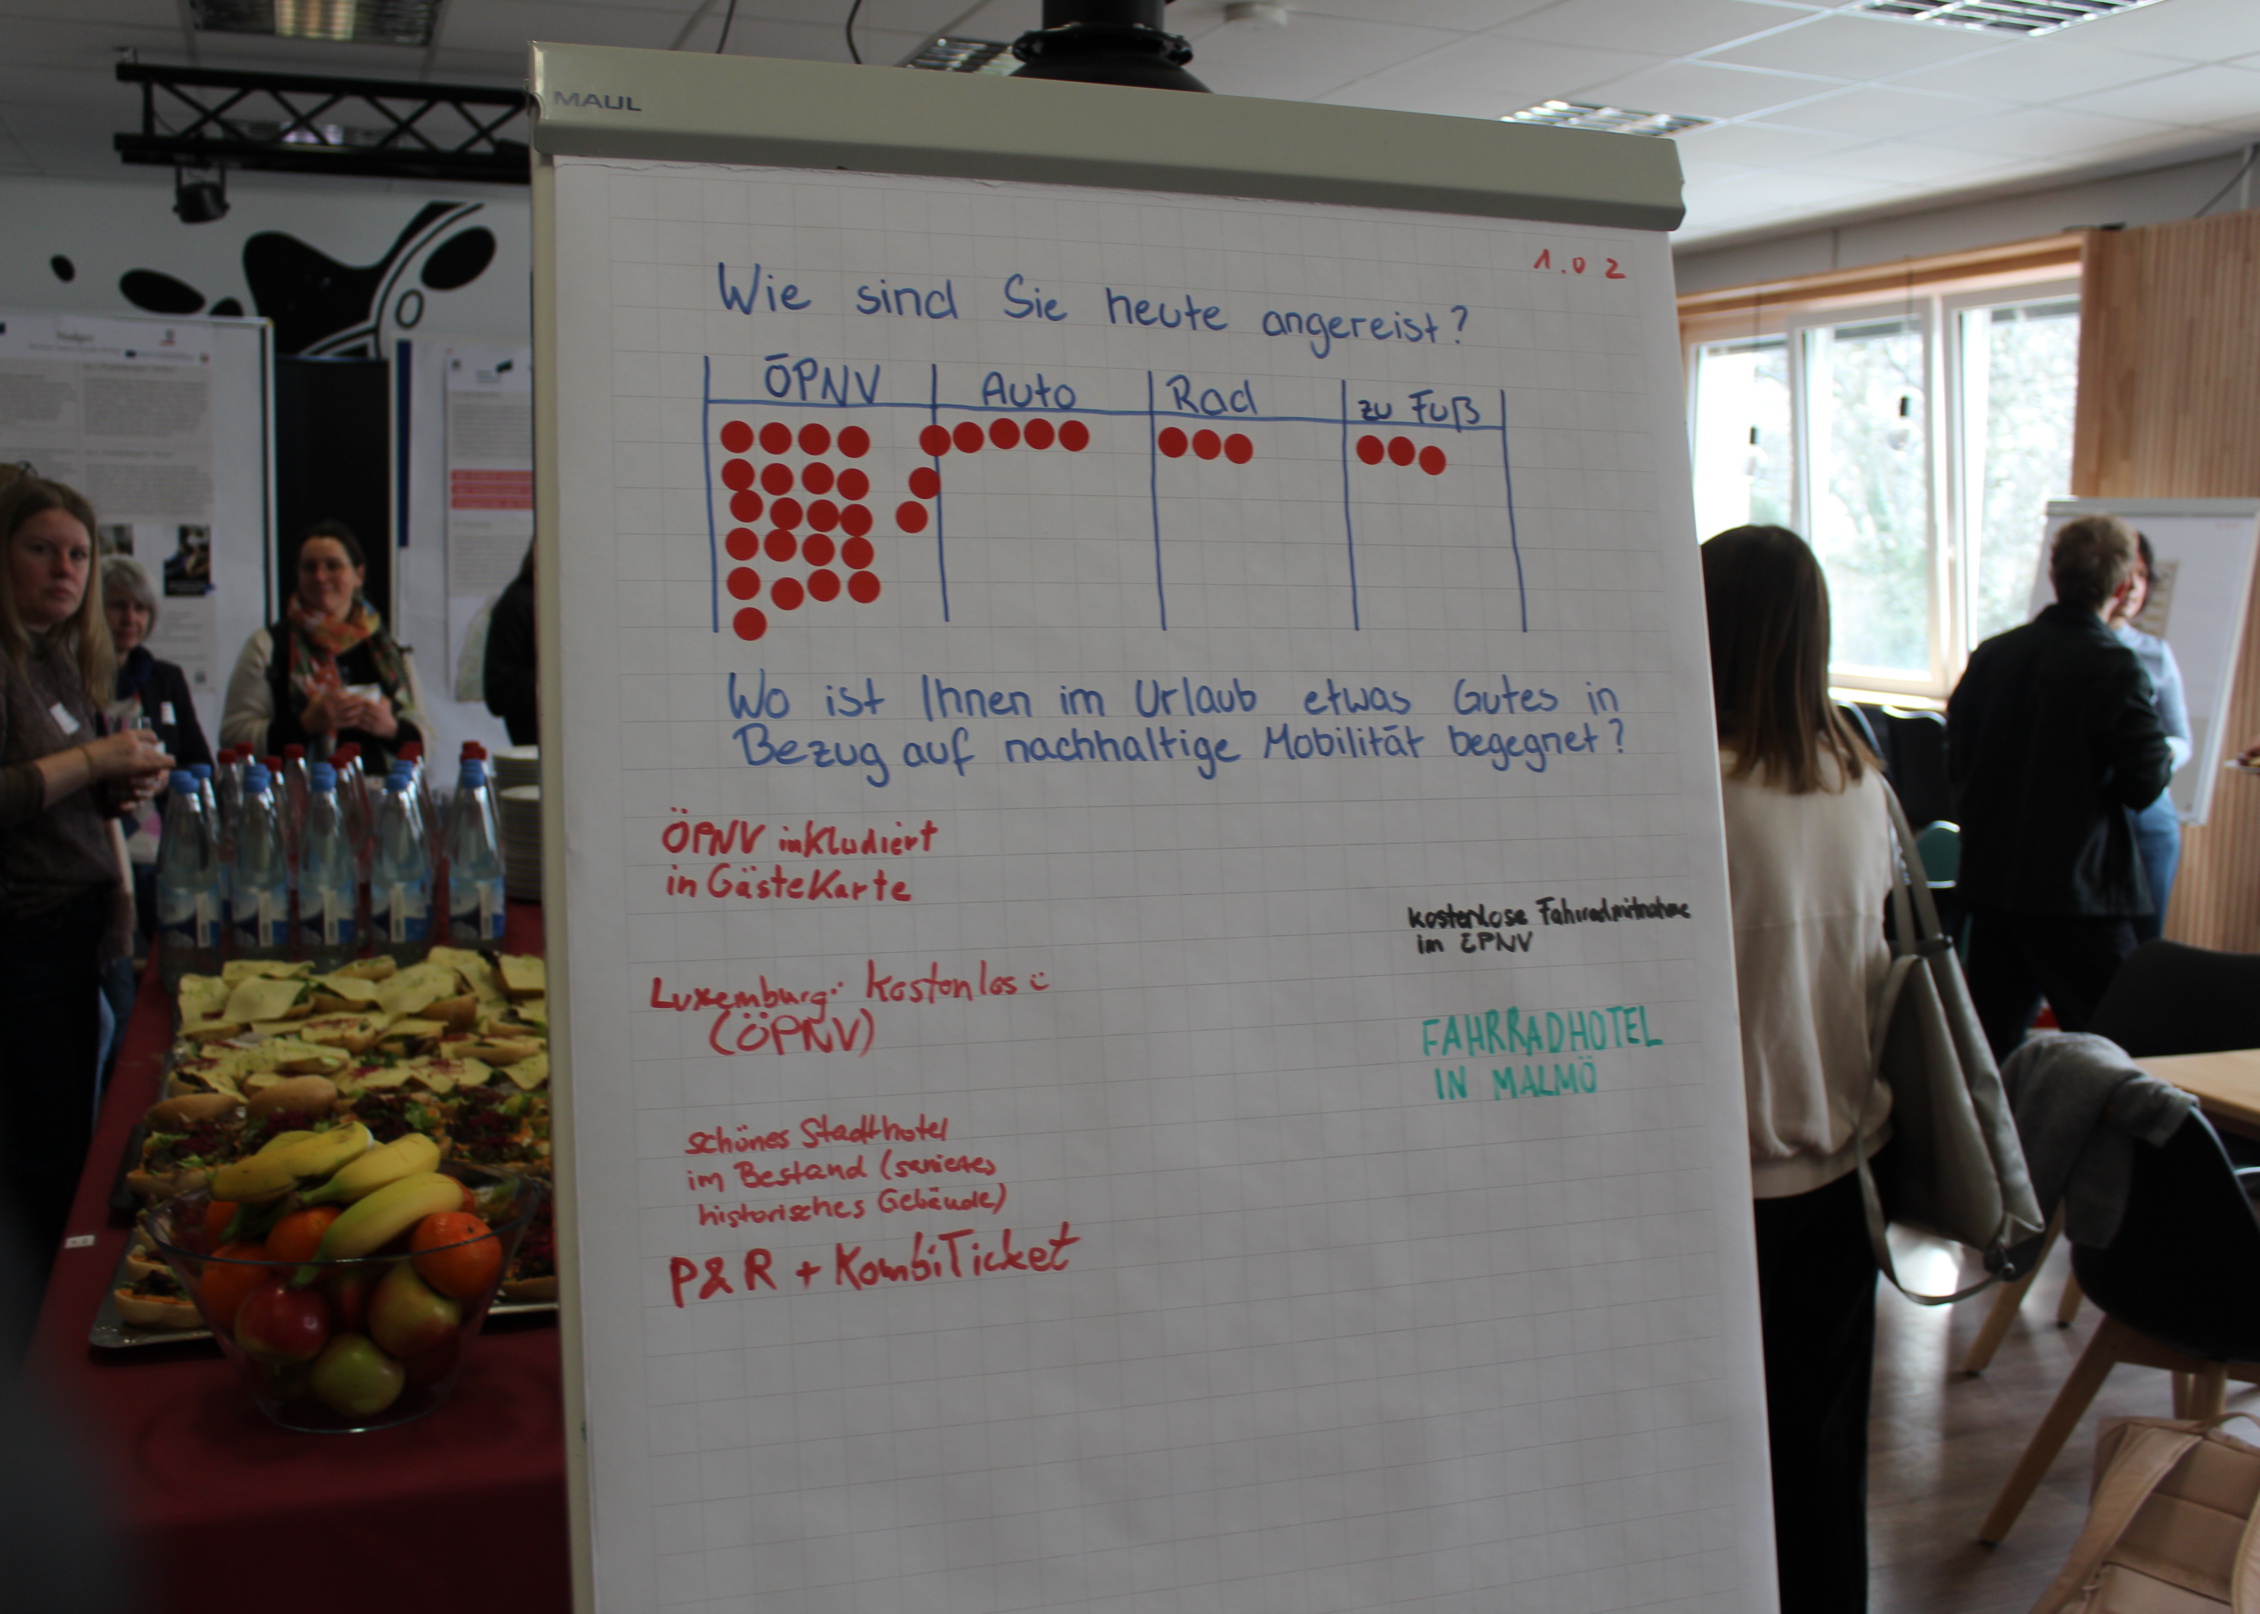 MAUL
1.02
Wie sind Sie heute angereist?
ÖPNV Auto Rad zu Fuß
Wo ist Ihnen im Urlaub etwas Gutes in
Bezug auf nachhaltige Mobilität begegnet?
ÖPNV inkludiert
in Gästekarte
kostenlose Fahrradmitnahme
im ÖPNV
Luxemburg: kostenlos
(ÖPNV)
FAHRRADHOTEL
IN MALMÖ
schönes Stadthotel
im Bestand (saniertes
historisches Gebäude)
P&R + KombiTicket